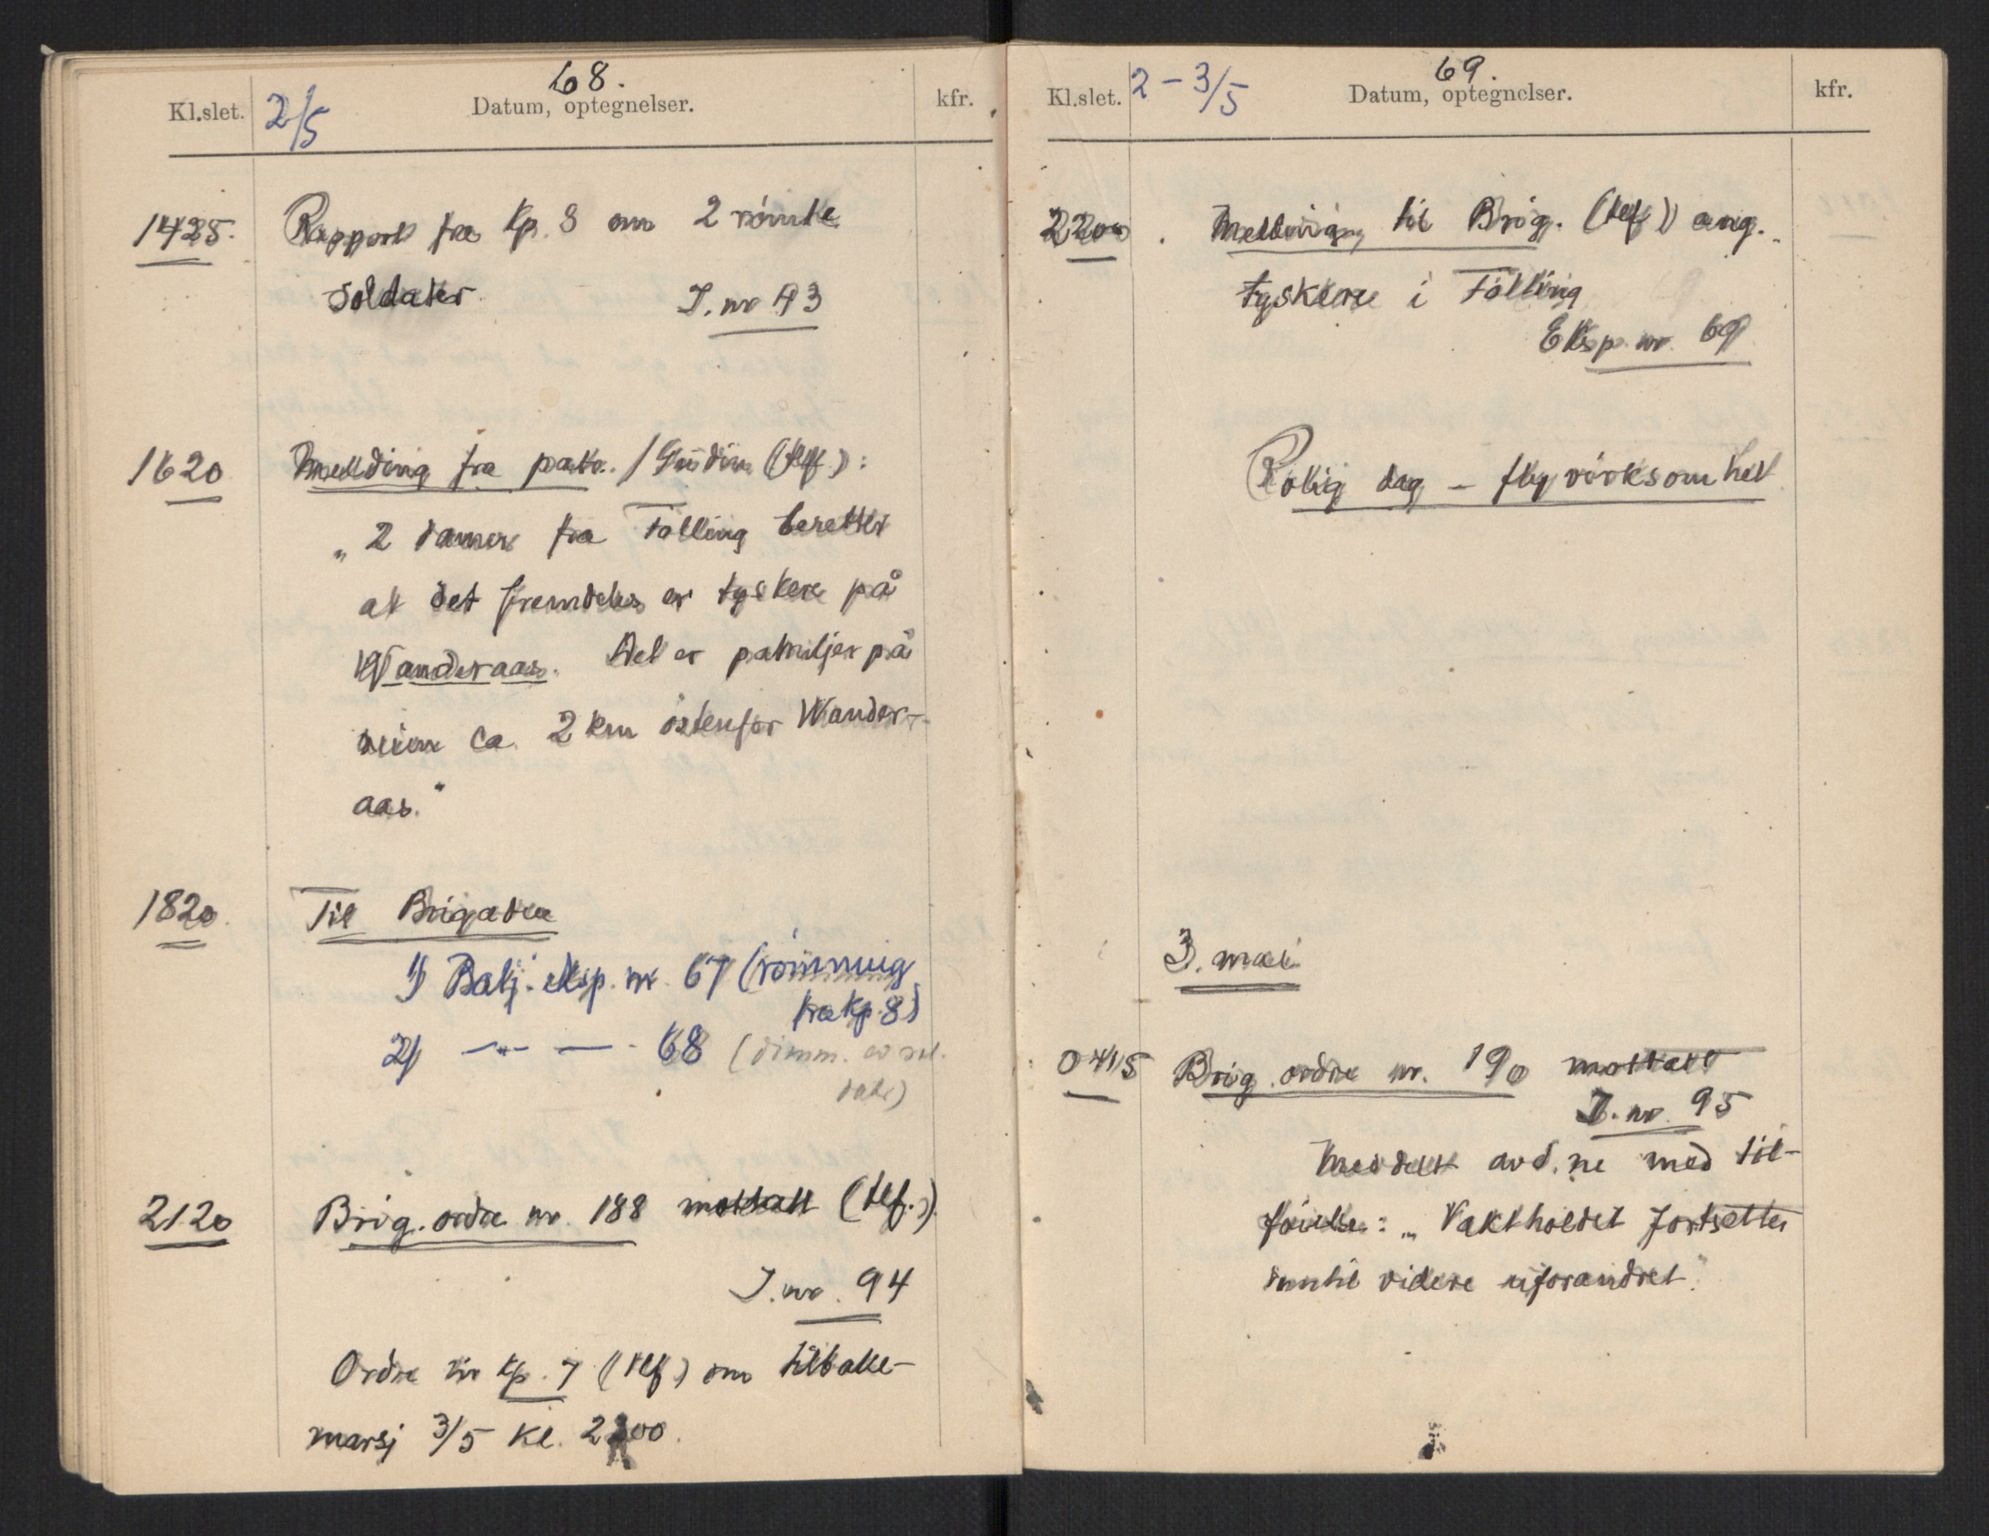 68.
Kl.slet. 2/5 Datum, optegnelser. kfr.
1425. Rapport fra Kp. 8 om 2 römte
soldater.
J. nr 93
1620 Melding fra patr. / Gudim (tlf.):
„2 damer fra Fölling beretter
at det fremdeles er tyskere på
Wanderaas. Det er patruljer på
veien ca. 2 km östenfor Wander-
aas."
1820. Til Brigaden
1) Batj. eksp. nr. 67 (römning
fra Kp. 8)
2) —"— — 68 (dimm. av sol.
dater)
2120 Brig. ordre nr. 188 mottatt (tlf.).
J. nr. 94
Ordre til Kp. 7 (tlf) om tilbake-
marsj 3/5 Kl. 2200.
69.
Kl.slet. 2 - 3/5 Datum, optegnelser. kfr.
2200. Melding til Brig. (tlf) ang.
tyskere i Fölling
Eksp. nr. 69
Rolig dag - flyvirksomhet
3. mai
0415 Brig. ordre nr. 190 mottatt
J. nr. 95
Meddelt avd.ne med til-
föielse: „Vaktholdet fortsetter
inntil videre uforandret."